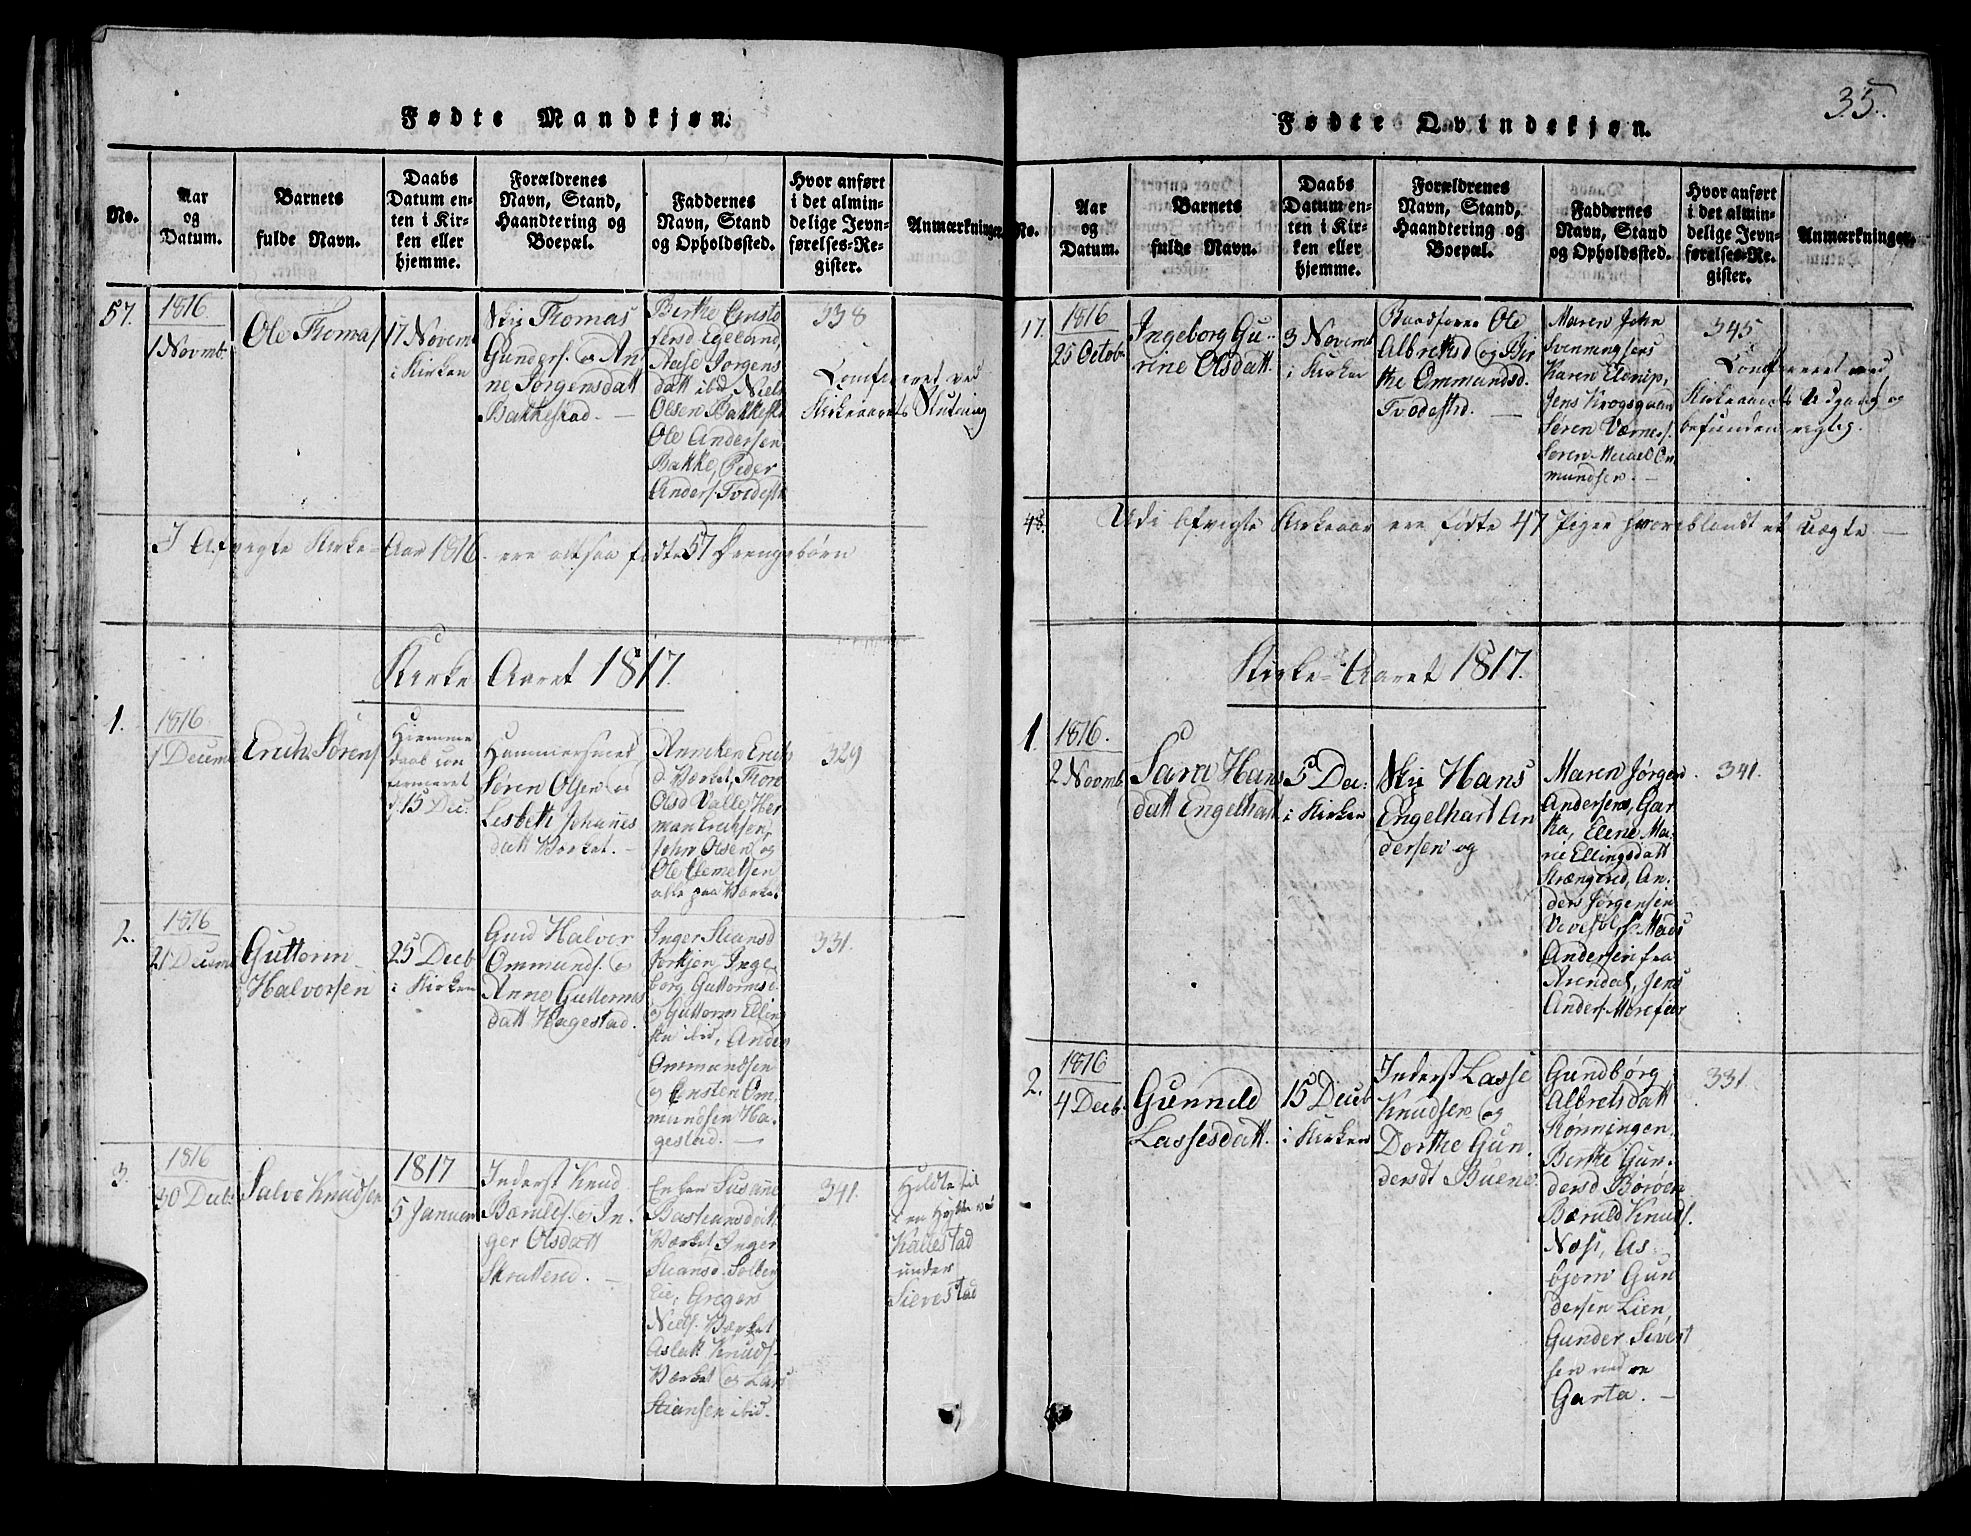 Fødte Mandkjøn.
No.
Aar
og
Datum.
Barnets
fulde Navn.
Daabs
Datum en-
ten i Kir-
ken eller
hjemme.
Forældrenes
Navn, Stand,
Haandtering og
Boepæl.
Faddernes
Navn, Stand
og Opholdssted.
Hvor anført
i det almin-
delige Jevn-
førelses-Re-
gister.
Anmærkninger.
57.
1816
1 Novmb.
Ole Thomas
17 Novem
i Kirken
Thomas
Gunders. og An
ne Jørgensdatt
Bakkestad.
Berthe
Egeland
Aase Jørgens
datt ibd Niels
Olsen Bakkesta
Ole Andersen
Bakke, Peder
Anders. Tvedestr
338
Confereret ved
Kirkeaarets Slutning
I Afvigte Kirke-Aar 1816 ere altsaa fødte 57 Drengebørn
Kirke Aaret 1817.
1.
1816
1 Decem
Erich Sørens
Hjemme
daab con
firmeret
d. 15 Dec.
Hammersmed
Søren Olsen og
Lisbeth Johanes
datt Værket.
Anniken Erich
d. Værket, Thore
Olsd Valle, Her
man Erichsen,
John Olsen, og
Ole Clemetsen
alle paa Værket.
329
2.
1816
21 Decem
Guttorm
Halvorsen
25 Decb
i Kirken
Gmd Halvor
Ommunds. og
Anne Guttorms
datt Hagestad.
Inger Stiansd
Inge-
borg Guttormsd
og Guttorm Elling
sen ibid, Anders
Ommundsen
og Ensten Om
mundsen Ha-
gestad.
331.
3.
1816
30 Decb.
Salve Knudsen
1817
5 Januar
Inderst Knud
og In
ger Olsdatt
Skratterei.
Enken Susane
Bastiansdatt
Værket Inger
Stiansd. Solber
Lie, Gregers
Niels. Værket
Aslak Knuds.
Værket og Lars
Stiansen ibid.
341.
under
Sievestad
35.
Fødte Qvindekjøn.
No.
Aar
og
Datum.
Barnets
fulde Navn.
Daabs
Datum en-
ten i Kir-
ken eller
hjemme.
Forældrenes
Navn, Stand,
Haandtering og
Boepæl.
Faddernes
Navn, Stand
og Opholdssted.
Hvor anført
i det almin-
delige Jevn-
førelses-Re-
gister.
Anmærkninger.
17.
1816
25 Octob
Ingeborg Gu-
rine Olsdatt.
3 Novemb
i Kirken
Ole
Albretsd og Bir
the Ommundsd.
Tvedestrd.
Maren John
Svenningsens
Karen
Jens Krogsgaan
Søren Værnes.
Søren Om
mundsen.
345.
Confereret ved
Kirkeaarets Udgang og
befunden rigtig.
48.
Udi Afvigte Kirkeaar ere fødte 47 Piger hvoriblandt et Uægte
Kirke-Aaret 1817.
1.
1816.
2 Novmb.
Sara Hans
datt Engelhart
5 Dec.
i Kirken
Hans
Engelhart An
dersen og
Maren Jørgen
Andersens, Gar
ta, Elene Ma-
rie Ellingsdatt
Strængered, An-
ders Jørgensen
Mads
Andersen fra
Arendal, Jens
Anders. Morefær
341.
2.
1816
4 Decb.
Gunnild
Lassesdatt.
15 Decb
i Kirken
Inderst Lasse
Knudsen og
Dorthe Gun-
dersdt Buene.
Gundborg
Albretsdatt
Rønningen,
Berthe Gun-
dersd Børøen
Bæruld Knuds.
Næs, As-
bjørn Gun
dersen Lien
Gunder Sivert
sen
Garta.
331.